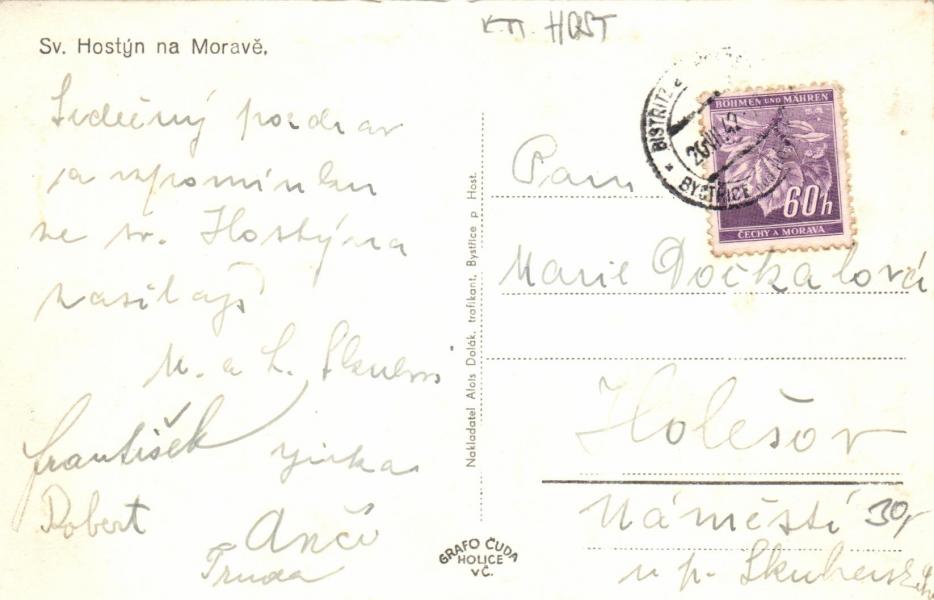 K.TT. HOST
Sv. Hostýn na Moravě.
Srdečný pozdrav
a vzpomínku
ze sv. Hostýna
zasílají
M. a L.
František Jirka
Robert
Truda
Nakladatel Alois Dolák, trafikant, Bystřice p Host.
GRAFO ČUDA
HOLICE
VČ.
BISTRITZ
BYSTŘICE
20.VII.42
BÖHMEN UND MÄHREN
60h
ČECHY A MORAVA
Marie Dočkalová
Holešov
Náměstí 30,-
u p.